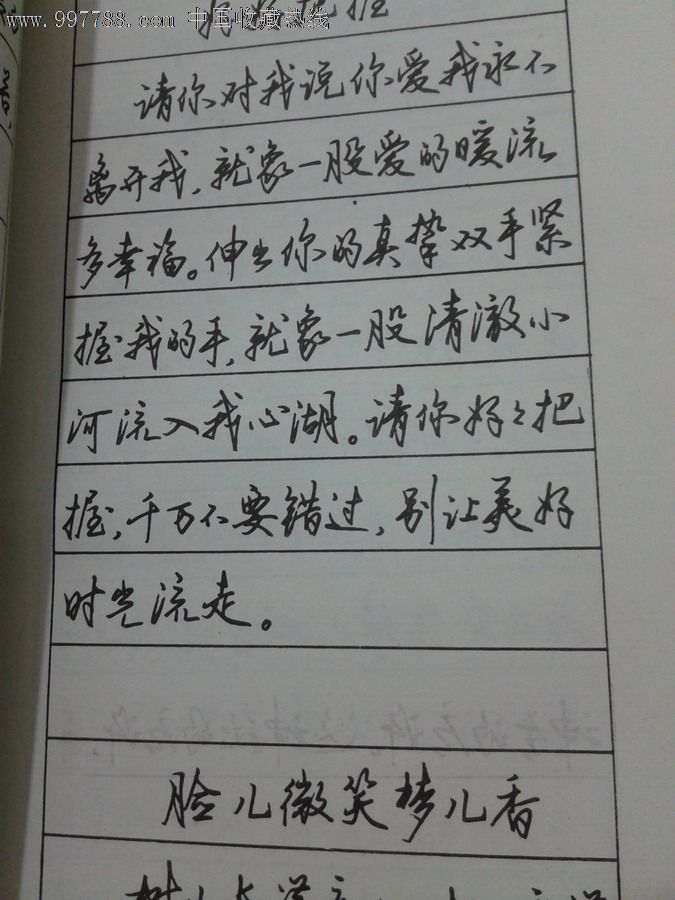 www.997788.com 中国收藏热线
好好把握
请你对我说你爱我永不
离开我,就象一股爱的暖流
多幸福。伸出你的真挚双手紧
握我的手,就象一股清澈小
河流入我心湖。请你好々把
握,千万不要错过,别让美好
时光流走。
脸儿微笑梦儿香